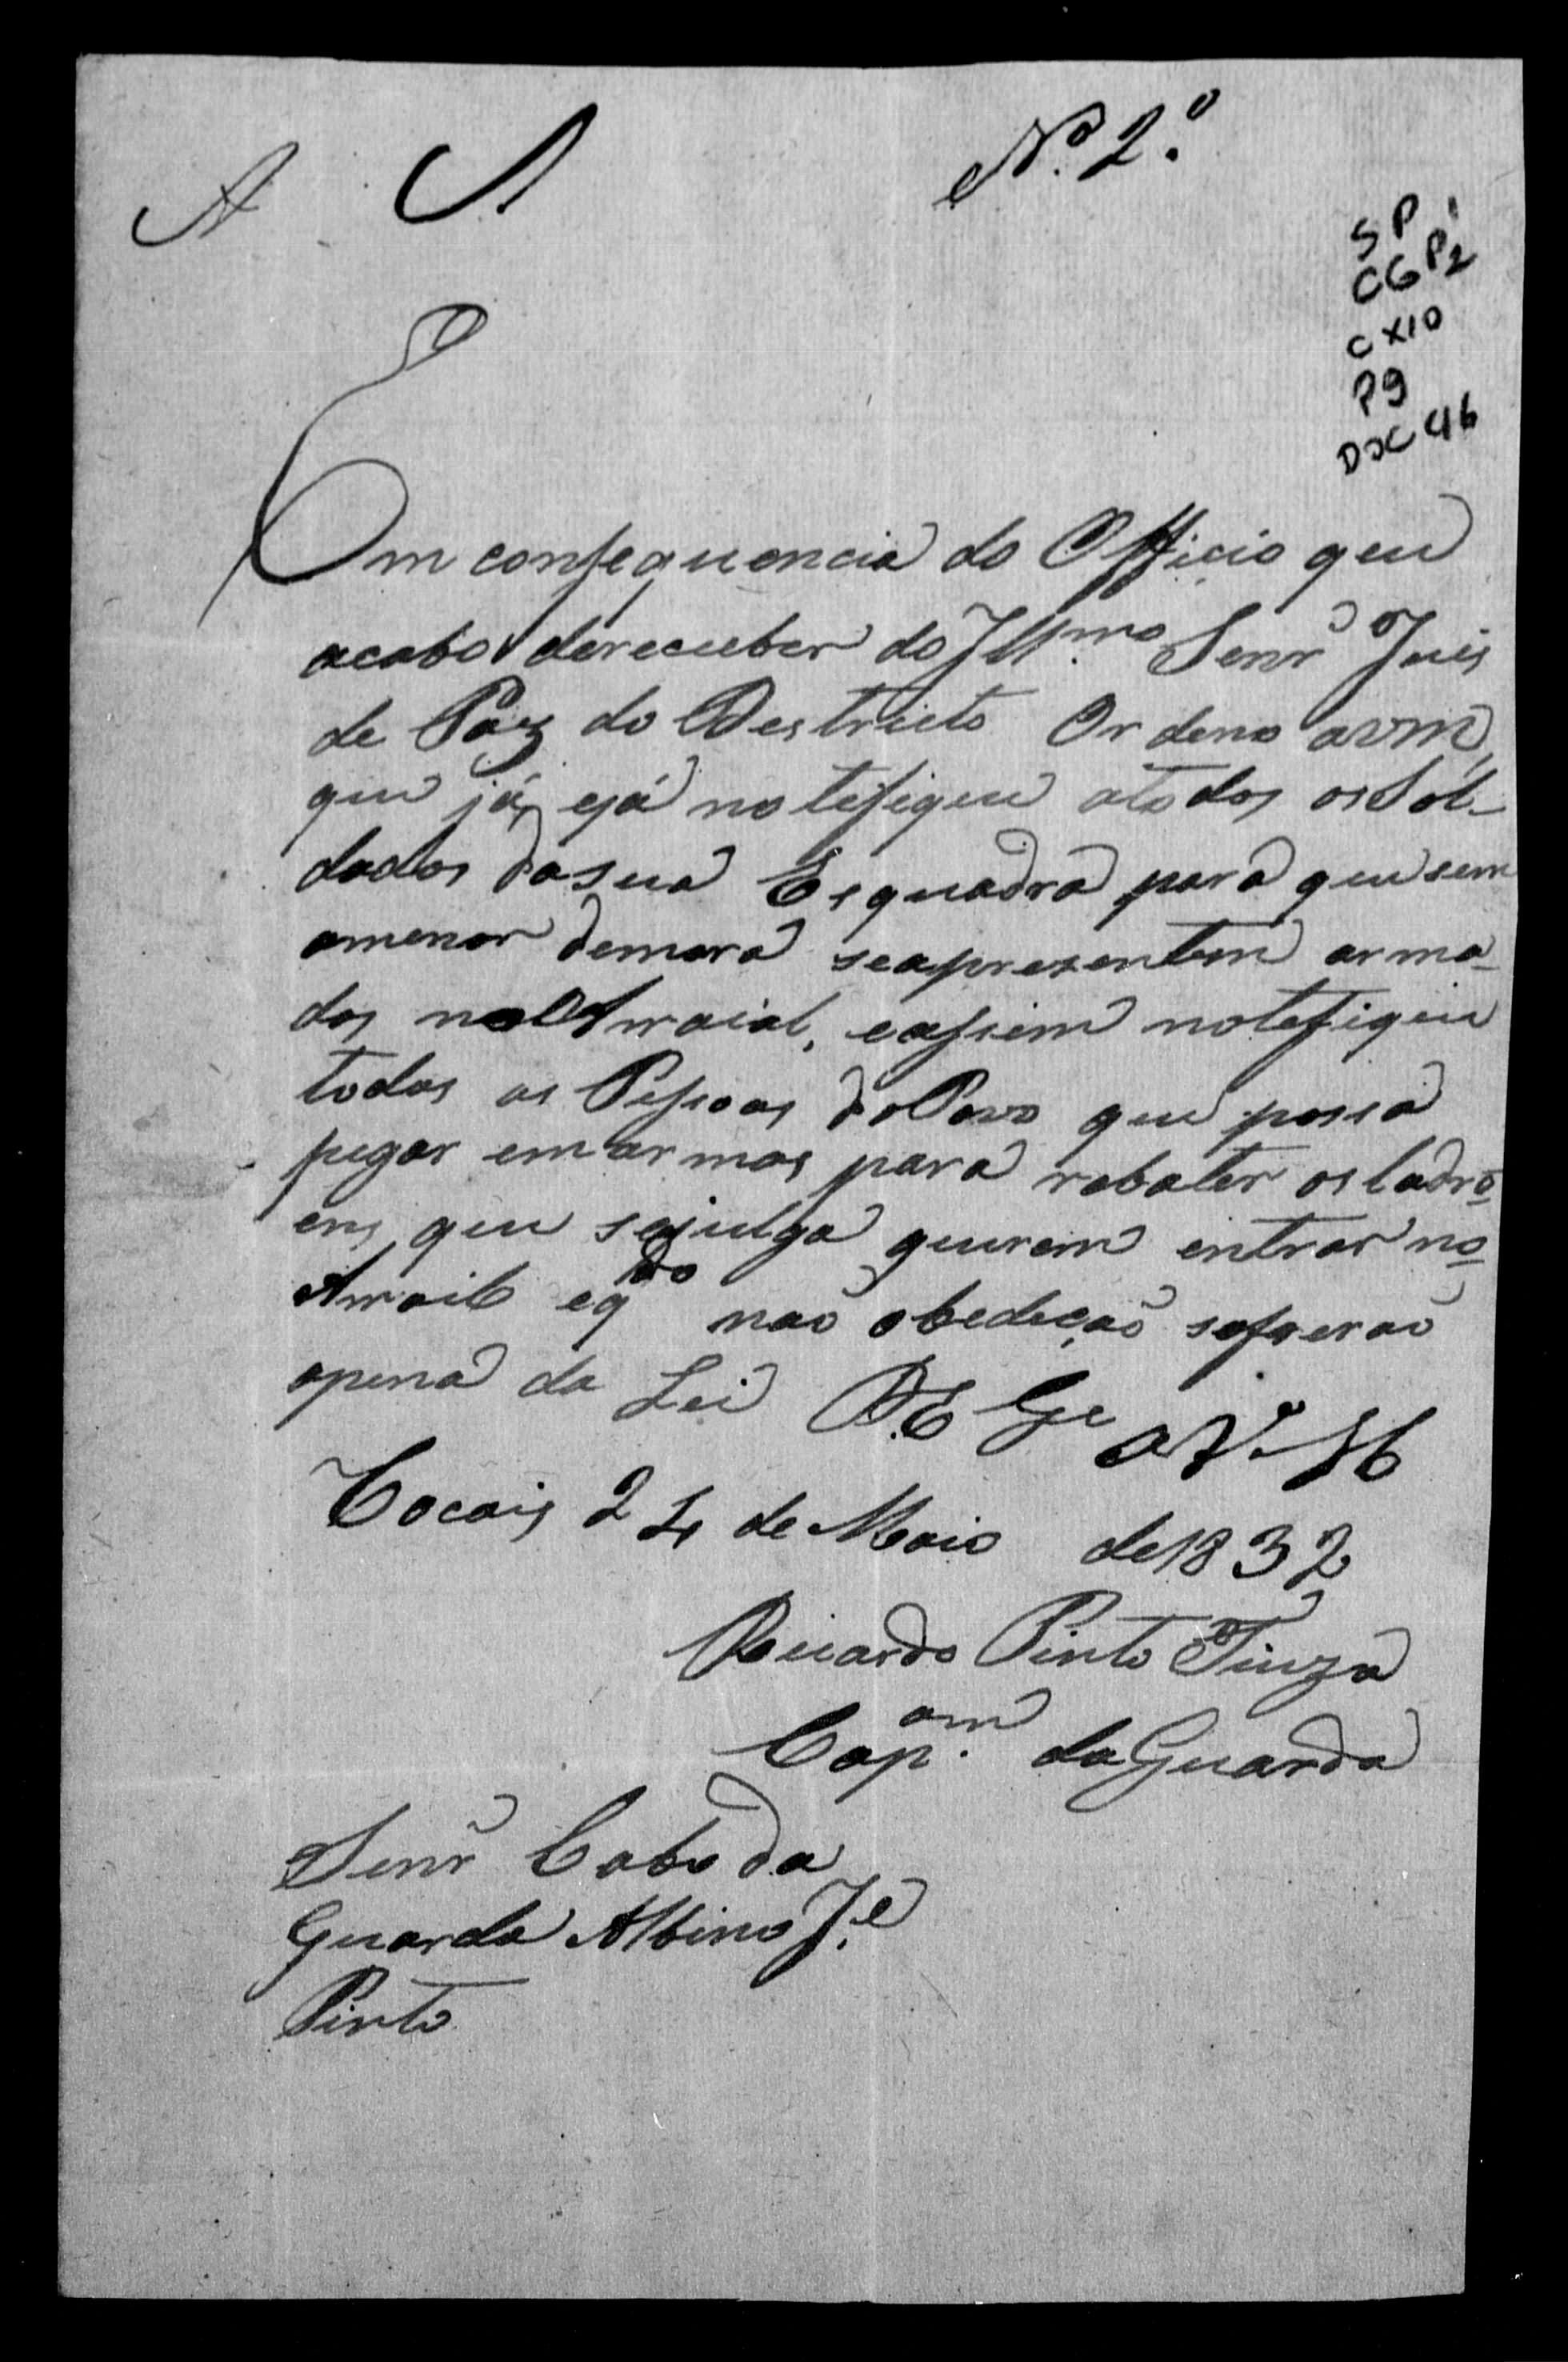 A A Nº. 2.º
SP 1
CG P2
CX10
P9
DOC 46
Em consequencia do Officio que
acabo dereceber do Ill.mo Senr̃ Juis
de Paz do Destricto Ordeno avm,
que já, ejá notefique atodos os Sol-
dados dasua Esquadra para que sem
amenor demora seaprezentem arma-
dos no Arraial, eassim notefique
todas as Pessoas do Povo que possa
pegar emarmas para rebater os ladro-
ens que sejulga querem entrar no
Arraial eqdo não obedeção sofrerão
apena da Lei D.E Ge a Vª. S6
Cocais 24 de Maio de 1832
Ricardo Pinto
Cap.am da Guarda
Senr̃ Cabo da
Guarda Albino J.e
Pinto